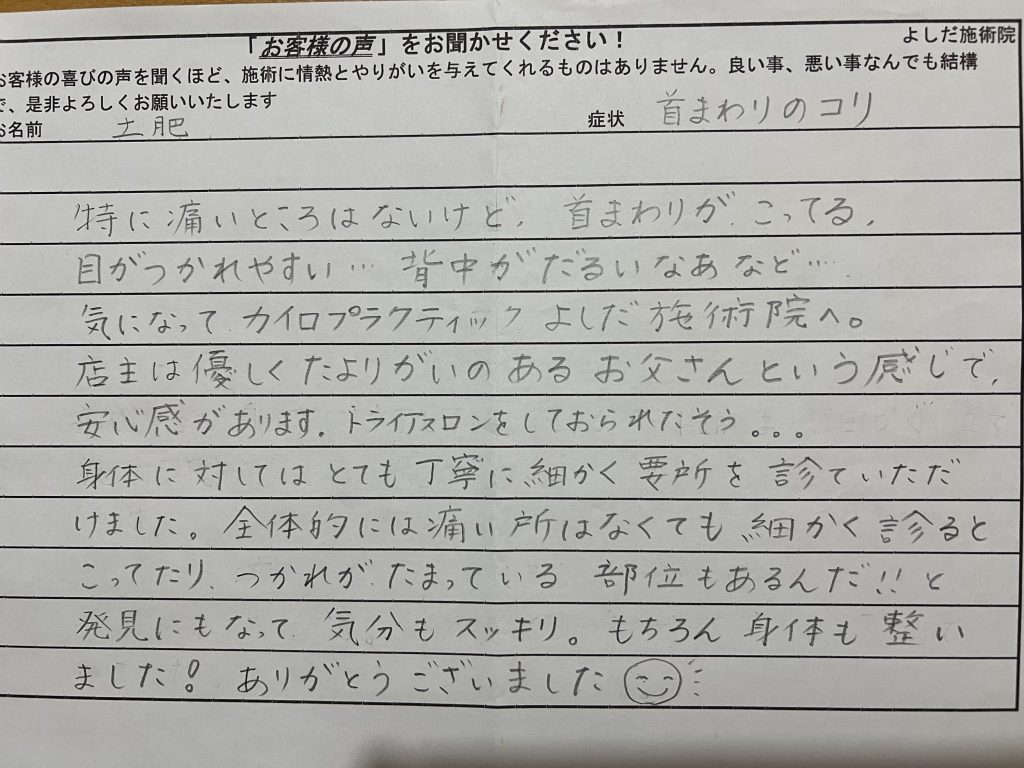 「お客様の声」をお聞かせください！ よしだ施術院
お客様の喜びの声を聞くほど、施術に情熱とやりがいを与えてくれるものはありません。良い事、悪い事なんでも結構
で、是非よろしくお願いいたします
お名前 土肥 症状 首まわりのコリ
特に痛いところはないけど、首まわりが、こってる、
目がつかれやすい… 背中がだるいなあなど…
気になって カイロプラクティック よしだ施術院へ。
店主は優しくたよりがいのある お父さんという感じで、
安心感があります。トライアスロンをしておられたそう。。。
身体に対してはとても丁寧に細かく要所を診ていただ
けました。全体的には痛い所はなくても細かく診ると
こってたり、つかれがたまっている部位もあるんだ!!と
発見にもなって気分もスッキリ。もちろん身体も整い
ました! ありがとうございました